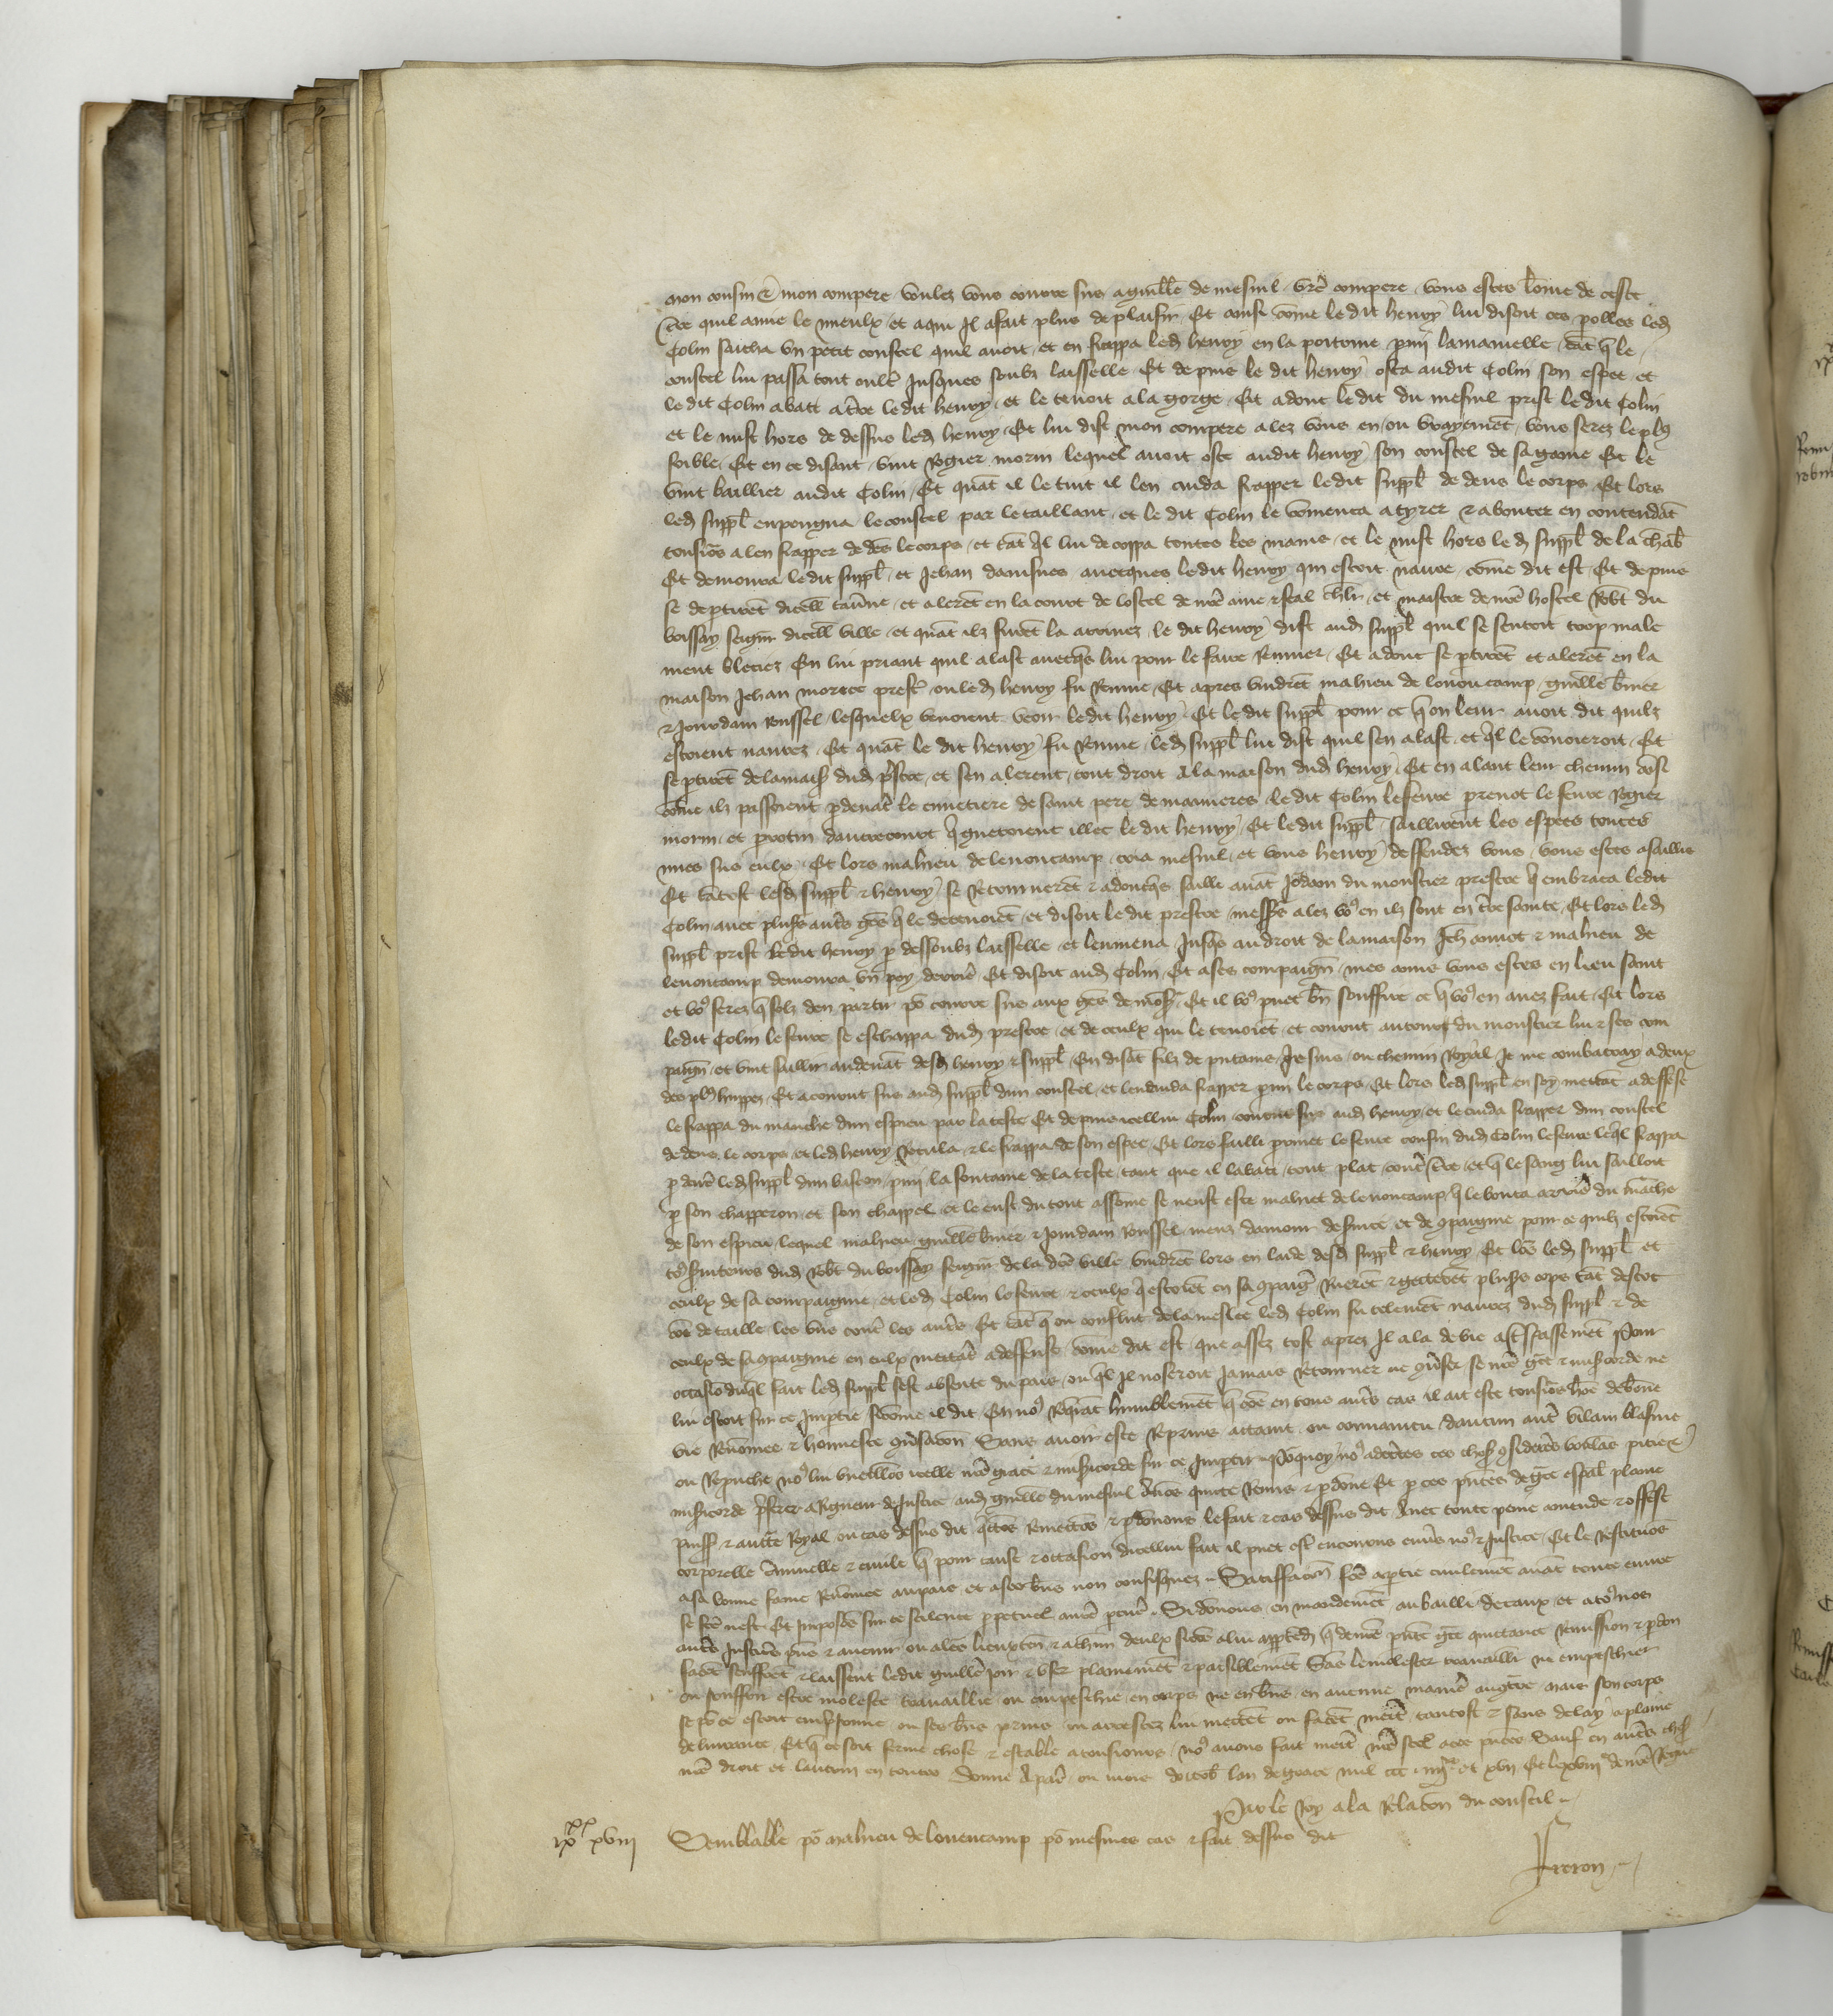 mon cousin et mon compere voulez vous courre sus a guille de mesnil vre compere vous estes lome de ceste
tre quil aime le mieulx et a qui il a fait plus de plaisir Et ainsi come le dit henry lui disoit ces polles led
Colin saicha un petit coustel quil avoit et en frappa led henry en la poitrine pmi la mamelle tat q le
coustel lui passa tout oultre jusques soubz laisselle Et depuis le dit henry osta audit Colin son espee et
le dit Colin abati a tre le dit henry et le tenoit a la gorge Et adont le dit du mesnil prist le dit Colin
et le mist hors de dessus led henry Et lui dist mon compere alez vous en ou vrayemet vous serez le plus
foible Et en ce disant vint Rogier morin lequel avoit oste audit henry son coustel de sa game Et le
vint baillier audit Colin Et quat il le tint il len cuida frapper ledit suppl dedens le corps Et lors
led suppl enpongna le coustel par le taillant et le dit Colin le comenca a tyrer & a bouter en contendat
tousios a len frapper dedes le corps et tat ql lui decoppa toutes les mains et le mist hors led suppl de la chab
Et demoura ledit suppl et Jehan danisues avecques ledit henry qui estoit navre come dit est Et depuis
se deptiret dicelle tavne et aleret en la court de lostel de nre ame & feal chlr et maistre de nre hostel Robt du
boissay seignr dicelle ville et quat ilz furet la arrivez le dit henry dist aud suppl quil se sentoit trop male
ment bleciez En lui priant quil alast avecqs lui pour le faire Remuer Et adont se ptiret et aleret en la
maison Jehan morice prest ou led henry fu Remue Et apres vindret mahieu de lonoucamp guille bmer
& Jourdain roussel lesquelx venoient veoir ledit henry Et le dit suppl pour ce q on leur avoit dit quilz
estoient navrez Et quat le dit henry fu Remue led suppl lui dist quil sen alast et ql le convoieroit Et
se ptiret de la mais dud pstre et sen alerent tout droit a la maison dud henry Et en alant leur chemin aisi
come ilz passoient p devat le cimetiere de saint pere de manieres le dit Colin lefevre prenot lefevre Rogier
morin et pertin dautrecourt q guetoient illec le dit henry Et ledit suppl saillirent les espees toutes
nues sus eulx Et lors mahieu de lenoncamp cria mesnil et vous henry deffendez vous vous estes assaillis
Et tatost lesd suppl & henry se Retorneret & adoncqs sailli avat Jordain du monstier prestre q embraca ledit
Colin avec plusrs autrs ges q le detenoiet et disoit le dit prestre messrs alez vos en ilz sont en tre sainte Et lors led
suppl prist ledit henry p dessoubz laisselle et lenmena jusqs au droit de la maison Jeh amiot & mahieu de
lenoncamp demoura un poy derrier Et disoit aud Colin Et a ses compaigns mes amis vous estes en lieu saint
et vos serez q folz den partir po courre sus aux ges de monsr Et il vos puet bn souffire ce q vos en avez fait Et lors
ledit Colin lefevre se eschappa dud prestre et de ceulx qui le tenoiet et courut autour du monstier lui & ses com
paigns et vint saillir au devat desd henry & suppl En disat filz de putains je suis ou chemin Royal je me combatray a deux
des pls huppez Et a couru sus aud suppl dun coustel et len cuida frapper pmi le corps Et lors led suppl en soy mettat a deffese
le frappa du manche dun espieu par la teste Et depuis icellui Colin courut sus aud henry et le cuida frapper dun coustel
dedens le corps et led henry Recula & le frappa de son espee Et lors sailli prinet lefevre cousin dud Colin lefevre leql frappa
p derre led suppl dun baston pmi la fontaine de la teste tant que il labati tout plat contre tre et q le sang lui sailloit
p son chapperon et son chappel et le eust du tout assome se neust este mahiet de lenoncamp q le bouta arrier du mache
de son espieu lequel mahieu guille bmer & Jourdain Roussel meus damour de fuite et de qpaignie pour ce quilz estoiet
tos suiteurs dud Robt du boissay seignr de la de ville vindret lors en laide desd suppl & henry Et los led suppl et
ceulx de sa compaignie et led Colin lefevre & ceulx q estoiet en sa qpaign Rueret & getteret plusrs cops tat destoc
coe de taille les uns cont les autrs Et tat q ou conflict de la meslee led Colin fu telemet navrez dud suppl & de
ceulx de sa qpaignie en eulx mettat a deffense come dit est que assez tost apres il ala de vie a trespassemet Pour
occasio duql fait led suppl sest absente du pais ouql il noseroit jamais Retourner ne quser se nre gce & misicorde ne
lui estoit sur ce Imptie sicome il dit En nos Requat humblemet q coe en tous autrs cas il ait este tousios hoe de bone
vie Renomee & honneste quersacon Sans avoir este Reprins attaint ou convaincu daucun autr vilain blasme
ou Reprouche nos lui vueillos icelle nre grace & misicorde sur ce Impartir Pourquoy nos adcertes ces choses qsideres voulas pitie &
misicorde pferer a Rigueur de justice aud guille du mesnil Avos quitte Remis & pdone Et p ces putes de gce espal plaine
puiss & autte Royal ou cas dessus dit qttos Remettos & pdonons le fait & cas dessus dit Avec toute peine amende & offese
corporelle criminelle & civile q pour cause & occasion dicellui fait il puet est encourus envs nos & justice Et le Restituos
a sa bonne fame Renomee au pais et a ses bns non confisquez Satisfacon fte a ptie civilemet avat toute euvre
se fte nest Et Imposos sur ce scilence ppetuel a nre pcur Si donons en mandemet au bailli de caux et a tos nos
autrs justicrs pns & avenir ou a les lieuxten & a chun deulx sicoe a lui apptedra q de nre pnte gce quittance Remission & pdon
facet seuffret & laissent ledit guille joir & user plainemet & paisiblemet Sas le molester travaillr ni empeschier
ou souffrir estre moleste travaillie ou empeschie en corps ne en bns en aucune manie au gtre mais son corps
se po ce estoit empsonne ou ses bns prins ou arrestez lui mettet ou facet mettre tantost & sans delay a plaine
delivrance Et q ce soit ferme chose & estable a tousiours nos avons fait mettre nre scel a ces putes Sauf en autrs choses
nre droit et lautrui en toutes Donne a Paris ou mois doctob lan de grace mil ccc iiijxx et xvij Et le xviij de nre Regne
Par le Roy a la Relacon du conseil
ixxx xviij Semblable po mahieu de lonencamp po mesmes cas & fait dessus dit
Freron